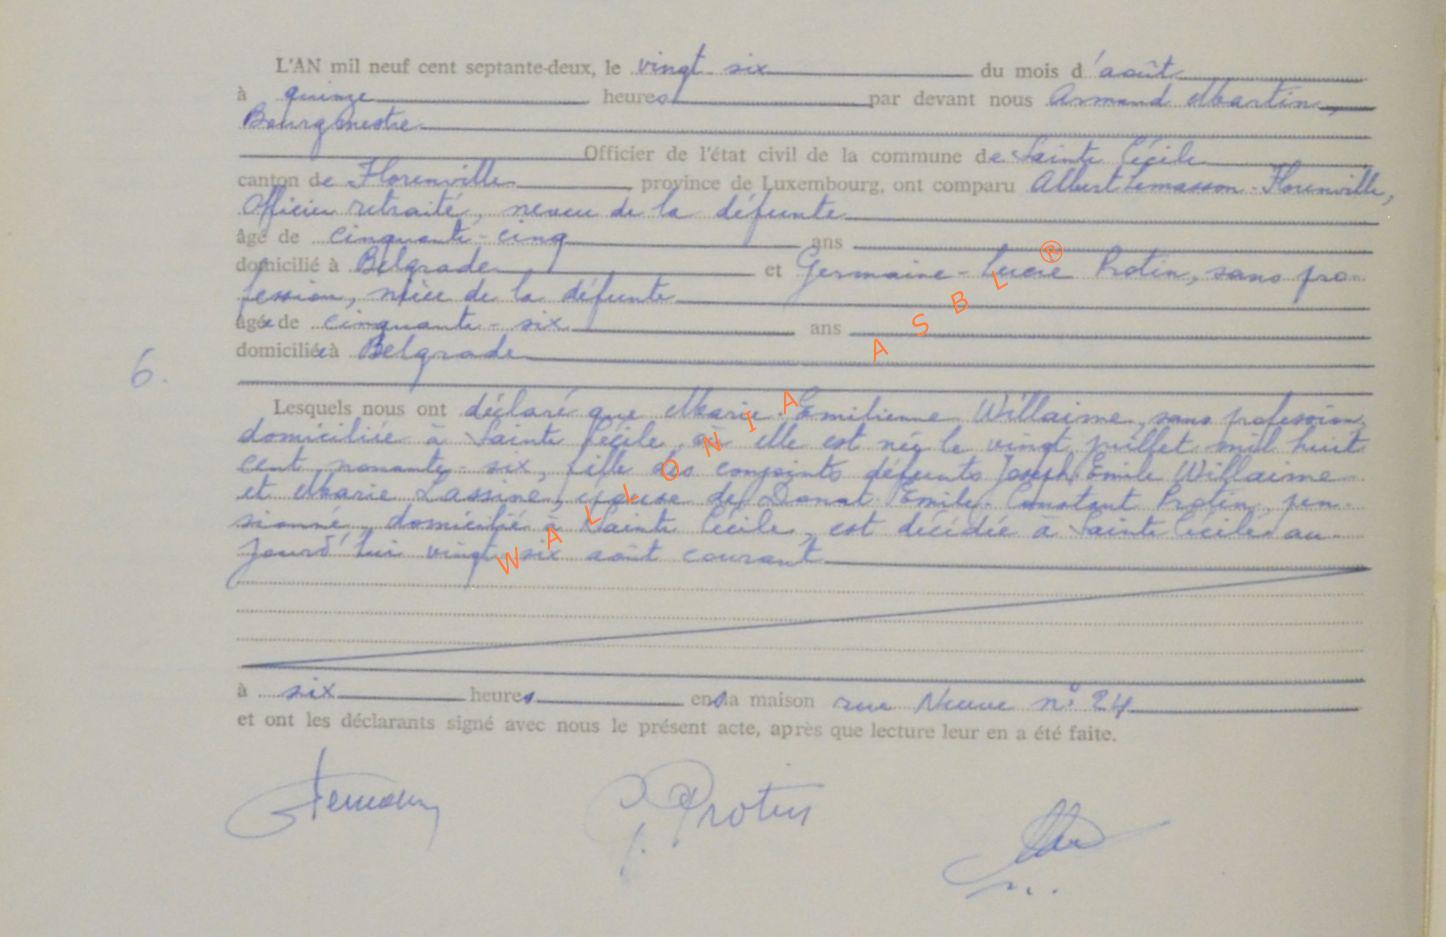 L'AN mil neuf cent septante-deux, le vingt six du mois d'août
à quinze heures par devant nous Armand Martin,
Bourgmestre
Officier de l'état civil de la commune de Sainte Cécile
canton de Florenville, province de Luxembourg, ont comparu Albert Lemasson-Florenville,
Officier retraité, neveu de la défunte
âgé de cinquante-cinq ans
domicilié à Belgrade et Germaine-Lucie Protin, sans pro-
fession, nièce de la défunte
âgée de cinquante-six ans
domiciliée à Belgrade
6.
Lesquels nous ont déclaré que Marie-Emilienne Willaime, sans profession,
domiciliée à Sainte Cécile, où elle est née le vingt juillet mil huit
cent nonante-six, fille des conjoints défunts Joseph Emile Willaime
et Marie Lassine, épouse de Donat Emile Constant Protin, pen-
sionné, domicilié à Sainte Cécile, est décédée à Sainte Cécile au-
jourd'hui vingt six août courant
à six heures en sa maison rue Neuve n° 24
et ont les déclarants signé avec nous le présent acte, après que lecture leur en a été faite.
Protin
WALLONIA ASBL ®